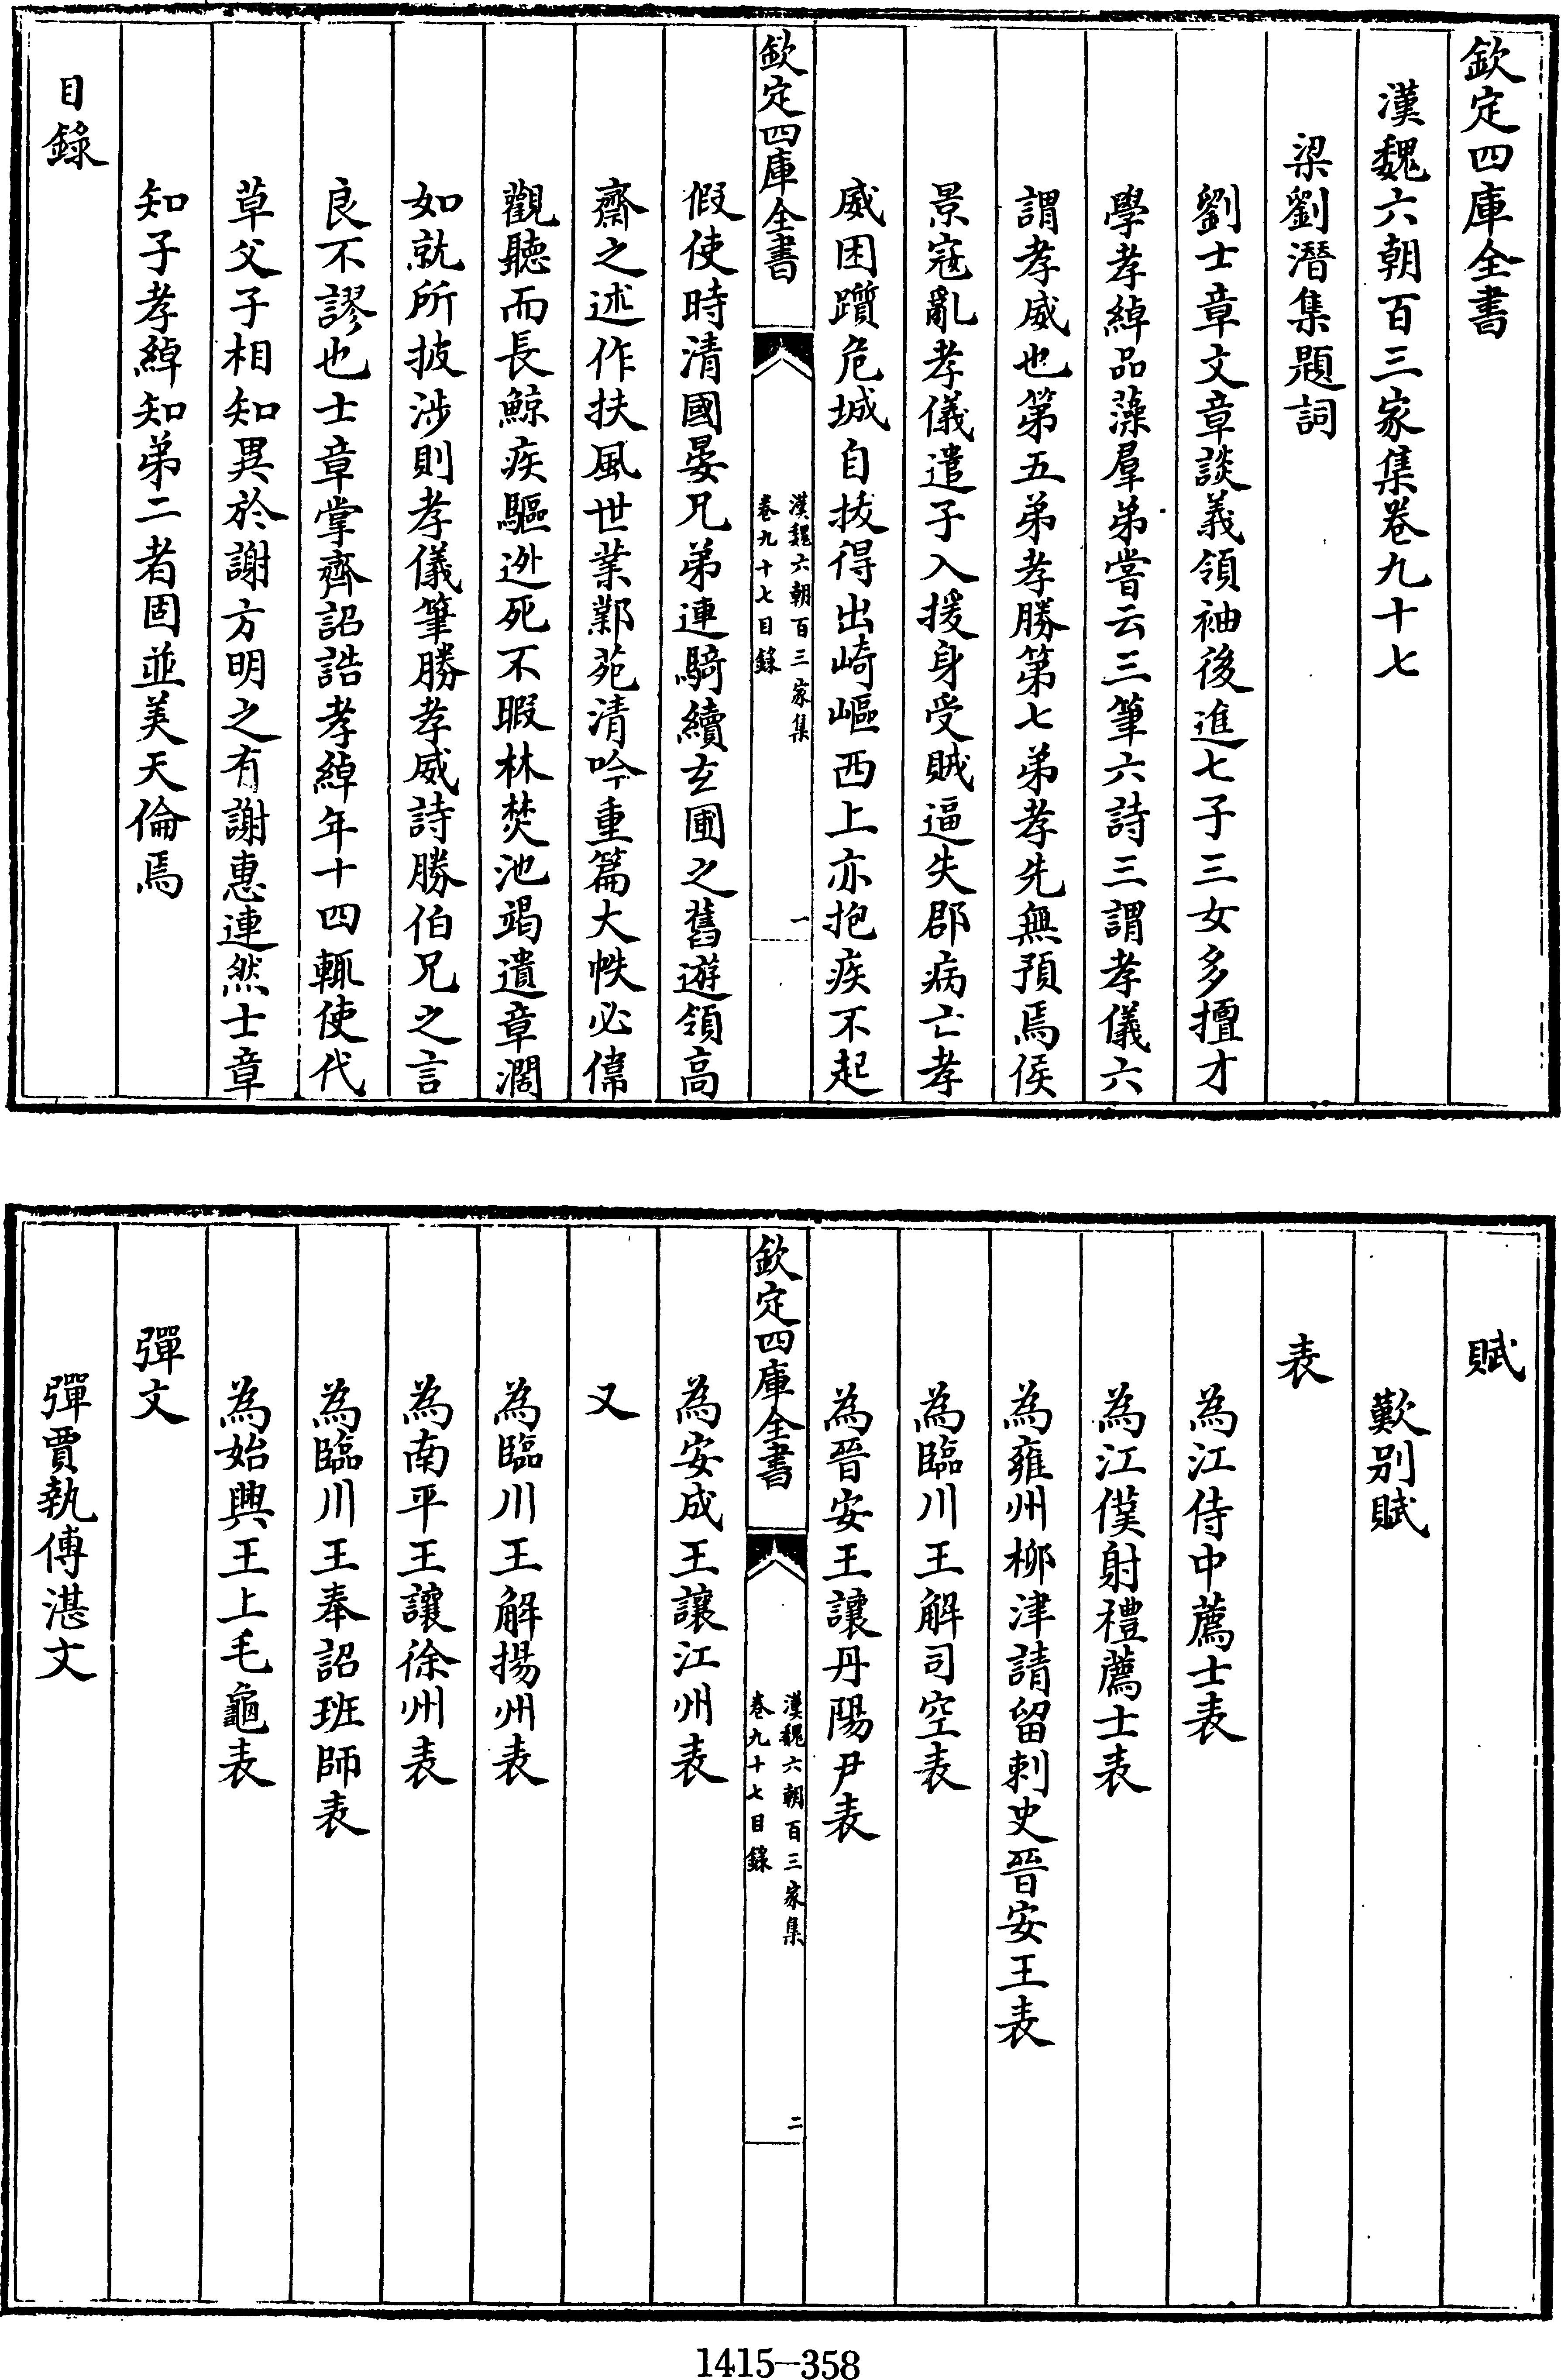 欽定四庫全書
漢魏六朝百三家集卷九十七
梁劉潛集題詞
劉士章文章談義領袖後進七子三女多擅才
學孝綽品藻羣弟嘗云三筆六詩三謂孝儀六
謂孝威也第五弟孝勝第七弟孝先無預焉侯
景寇亂孝儀遣子入援身受賊逼失郡病亡孝
威困躓危城自拔得出崎嶇西上亦抱疾不起
欽定四庫全書
漢魏六朝百三家集
卷九十七目錄
一
假使時清國晏兄弟連騎續玄圃之舊遊領高
齋之述作扶風世業鄴苑清吟重篇大帙必偉
觀聽而長鯨疾驅迯死不暇林焚池竭遺章濶
如就所披涉則孝儀筆勝孝威詩勝伯兄之言
良不謬也士章掌齊詔誥孝綽年十四輒使代
草父子相知異於謝方明之有謝惠連然士章
知子孝綽知弟二者固並美天倫焉
目錄
賦
歎別賦
表
為江侍中薦士表
為江僕射禮薦士表
為雍州柳津請留刺史晉安王表
為臨川王解司空表
為晉安王讓丹陽尹表
欽定四庫全書
漢魏六朝百三家集
卷九十七目錄
二
為安成王讓江州表
又
為臨川王解揚州表
為南平王讓徐州表
為臨川王奉詔班師表
為始興王上毛龜表
彈文
彈賈執傅湛文
1415-358